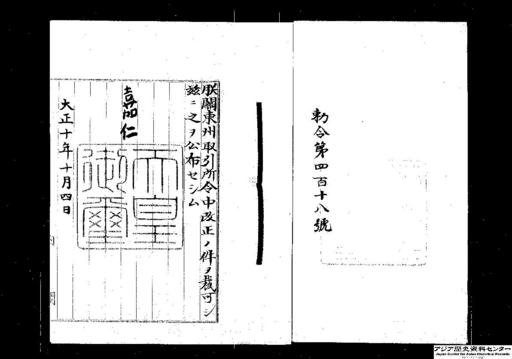 勅令第四百十八號
朕關東州取引所令中改正ノ件ヲ裁可シ
玆ニ之ヲ公布セシム
嘉仁
天皇御璽
大正十年十月四日
アジア歴史資料センター
Japan Center for Asian Historical Records